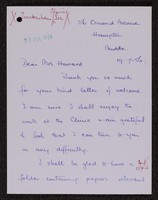 26 Ormond Avenue
Hampton
Middx.
19.7.56
Dear Miss Howard
Thank you so much
for your kind letter of welcome.
I am sure I shall enjoy the
work at the Clinic & am grateful
to feel that I can turn to you
in any difficulty.
I shall be glad to have a
folder containing papers relevant